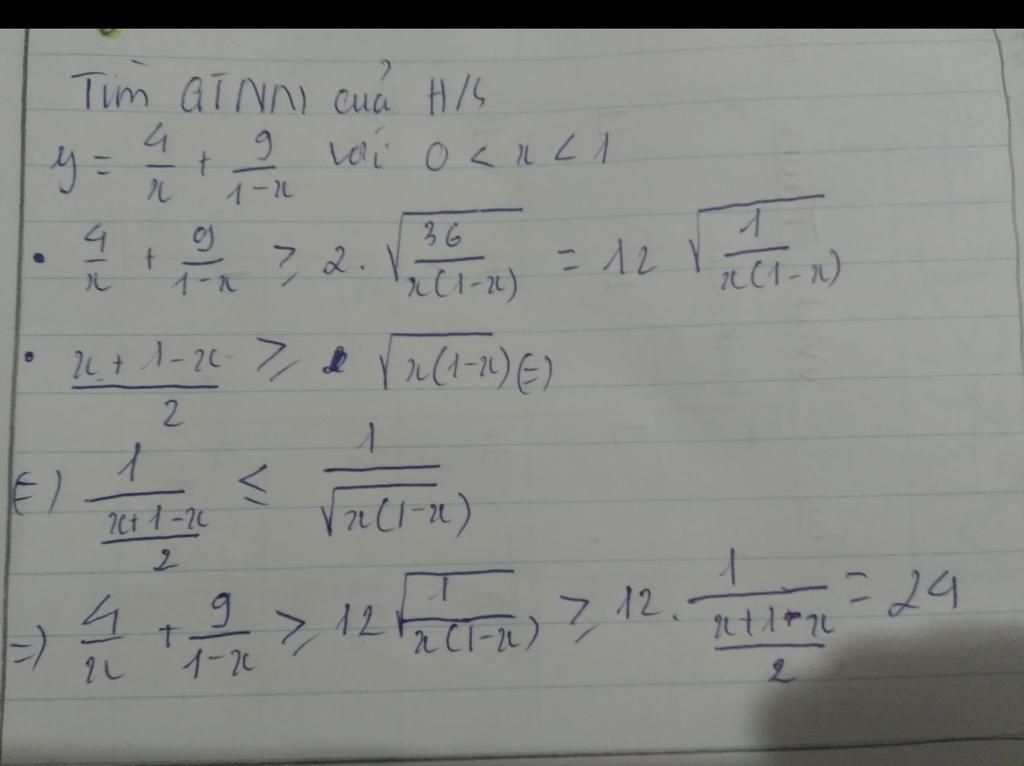 Tìm GTNN của H/s
y = 4/x + 9/(1-x) với 0 < x < 1
• 4/x + 9/(1-x) ≥ 2. √(36/(x(1-x))) = 12 √(1/(x(1-x)))
• (x + 1-x)/2 ≥ √(x(1-x)) (=)
(=) 1/((x+1-x)/2) ≤ 1/√(x(1-x))
=) 4/x + 9/(1-x) ≥ 12 √(1/(x(1-x))) ≥ 12. 1/((x+1-x)/2) = 24